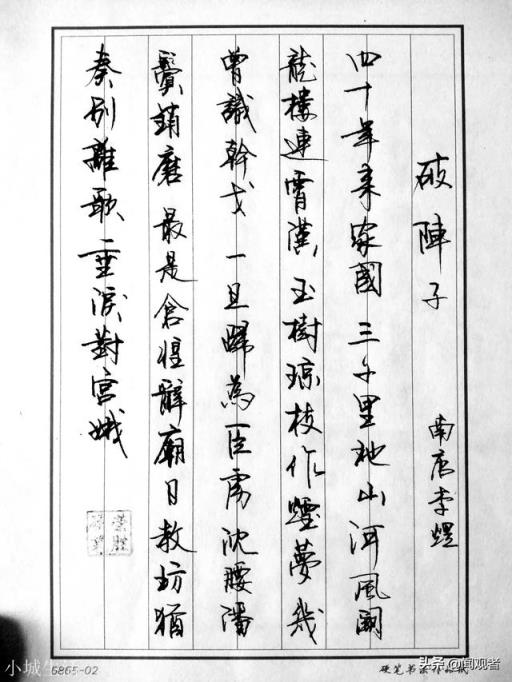 破陣子 南唐李煜
四十年来家國 三千里地山河 風閣
龍樓連霄漢 玉樹琼枝作煙夢 幾
曾識幹戈 一旦歸為臣虜 沈腰潘
鬢銷磨 最是倉惶辭廟日 教坊猶
奏別離歌 垂淚對宮娥
小城
6865-02
硬笔书法作品纸
头条 @闻观者